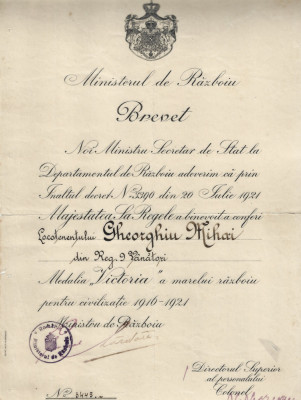 Ministerul de Războiu
Brevet
Noi Ministru Secretar de Stat la
Departamentul de Războiu adeverim că prin
Inaltul decret No 3390 din 20 Iulie 1921
Majestatea Sa Regele a benevoit a conferi
Locotenentului Gheorghiu Mihai
din Reg. 9 Vânători
Medalia "Victoria" a marelui războiu
pentru civilizație 1916-1921
Ministru de Războiu
Directorul Superior
al personalului
Colonel
No